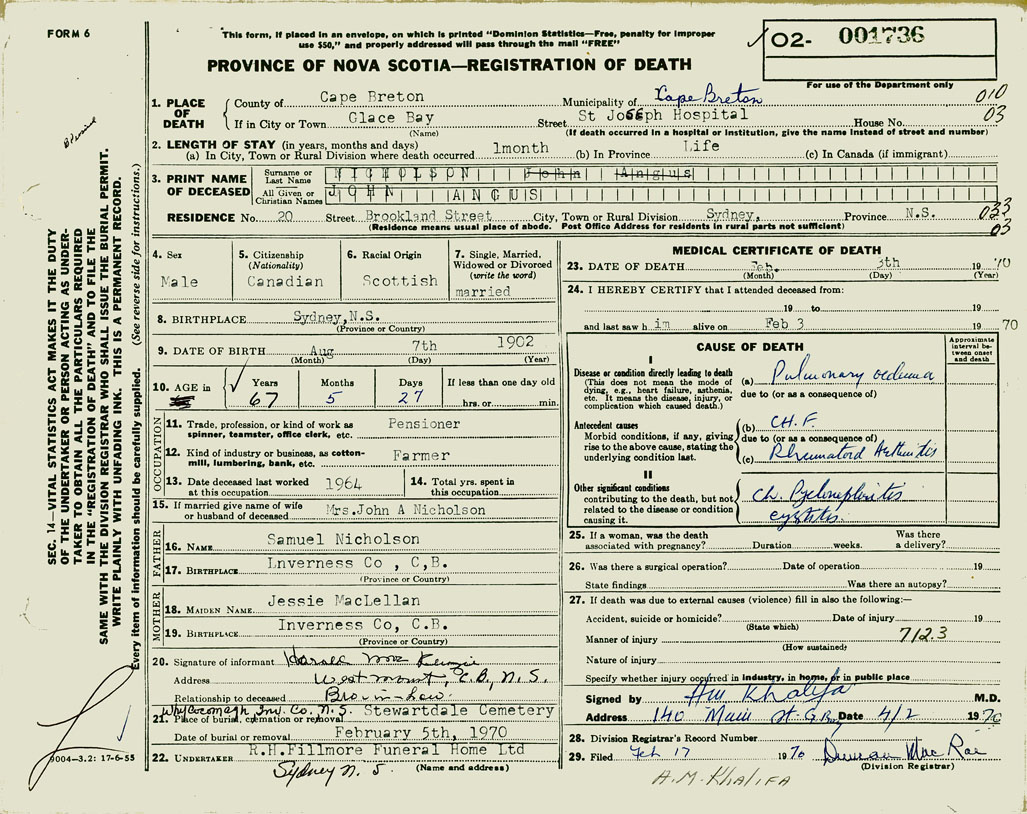 FORM 6
This form, if placed in an envelope, on which is printed "Dominion Statistics—Free, penalty for improper
use $50," and properly addressed will pass through the mail "FREE"
O2- 001736
PROVINCE OF NOVA SCOTIA—REGISTRATION OF DEATH
For use of the Department only
1. PLACE OF DEATH
County of Cape Breton Municipality of Cape Breton 010
If in City or Town Glace Bay Street St Joseph Hospital House No. 03
(Name) (If death occurred in a hospital or institution, give the name instead of street and number)
2. LENGTH OF STAY (in years, months and days)
(a) In City, Town or Rural Division where death occurred 1month (b) In Province Life (c) In Canada (if immigrant)
3. PRINT NAME OF DECEASED
Surname or Last Name NICHOLSON John Angus
All Given or Christian Names JOHN ANGUS
RESIDENCE No. 20 Street Brookland Street City, Town or Rural Division Sydney, Province N.S. 033
(Residence means usual place of abode. Post Office Address for residents in rural parts not sufficient) 03
4. Sex Male
5. Citizenship (Nationality) Canadian
6. Racial Origin Scottish
7. Single, Married, Widowed or Divorced (write the word) married
8. BIRTHPLACE Sydney,N.S.
(Province or Country)
9. DATE OF BIRTH Aug 7th 1902
(Month) (Day) (Year)
10. AGE in Years Months Days If less than one day old
67 5 27 hrs. or min.
OCCUPATION
11. Trade, profession, or kind of work as spinner, teamster, office clerk, etc. Pensioner
12. Kind of industry or business, as cotton-mill, lumbering, bank, etc. Farmer
13. Date deceased last worked at this occupation 1964
14. Total yrs. spent in this occupation
15. If married give name of wife or husband of deceased Mrs.John A Nicholson
FATHER
16. NAME Samuel Nicholson
17. BIRTHPLACE Lnverness Co , C,B.
(Province or Country)
MOTHER
18. MAIDEN NAME Jessie MacLellan
19. BIRTHPLACE Inverness Co, C.B.
(Province or Country)
20. Signature of informant Harold Mac Kenzie
Address Westmount, C.B., N.S.
Relationship to deceased Bro-in-Law.
Whycocomagh Inv. Co. N.S. Stewartdale Cemetery
21. Place of burial, cremation or removal
Date of burial or removal February 5th, 1970
22. UNDERTAKER R.H.Fillmore Funeral Home Ltd
Sydney N. S. (Name and address)
MEDICAL CERTIFICATE OF DEATH
23. DATE OF DEATH Feb. 3th 19 70
(Month) (Day) (Year)
24. I HEREBY CERTIFY that I attended deceased from:
19 to 19
and last saw h im alive on Feb 3 19 70
CAUSE OF DEATH
Approximate interval between onset and death
I
Disease or condition directly leading to death
(This does not mean the mode of dying, e.g., heart failure, asthenia, etc. It means the disease, injury, or complication which caused death.)
(a) Pulmonary oedema
due to (or as a consequence of)
Antecedent causes
Morbid conditions, if any, giving rise to the above cause, stating the underlying condition last.
(b) CH.F.
due to (or as a consequence of)
(c) Rheumatoid Arthritis
II
Other significant conditions
contributing to the death, but not related to the disease or condition causing it.
Ch. Pyelonephritis
cystitis.
25. If a woman, was the death associated with pregnancy? Duration weeks. Was there a delivery?
26. Was there a surgical operation? Date of operation 19
State findings Was there an autopsy?
27. If death was due to external causes (violence) fill in also the following:—
Accident, suicide or homicide? Date of injury 19
(State which)
Manner of injury 7123
(How sustained)
Nature of injury
Specify whether injury occurred in industry, in home, or in public place
Signed by AM Khalifa M.D.
Address 140 Main St. G.B. Date 4/2 1970
28. Division Registrar's Record Number
29. Filed Feb 17 1970 Duncan MacRae
(Division Registrar)
A.M. KHALIFA
SEC. 14—VITAL STATISTICS ACT MAKES IT THE DUTY
OF THE UNDERTAKER OR PERSON ACTING AS UNDER-
TAKER TO OBTAIN ALL THE PARTICULARS REQUIRED
IN THE "REGISTRATION OF DEATH" AND TO FILE THE
SAME WITH THE DIVISION REGISTRAR WHO SHALL ISSUE THE BURIAL PERMIT.
WRITE PLAINLY WITH UNFADING INK. THIS IS A PERMANENT RECORD.
Every item of information should be carefully supplied. (See reverse side for instructions.)
9004—3.2: 17-6-55